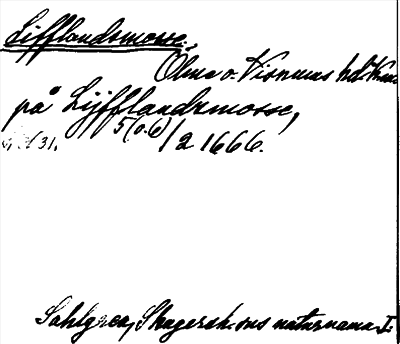 Lifflandsmosse.
Ölme o. Visnums hd
på Lijfflandzmosse,
5(o.6)/2 1666.
Sahlgren, Skagersh:sns naturnamn I.